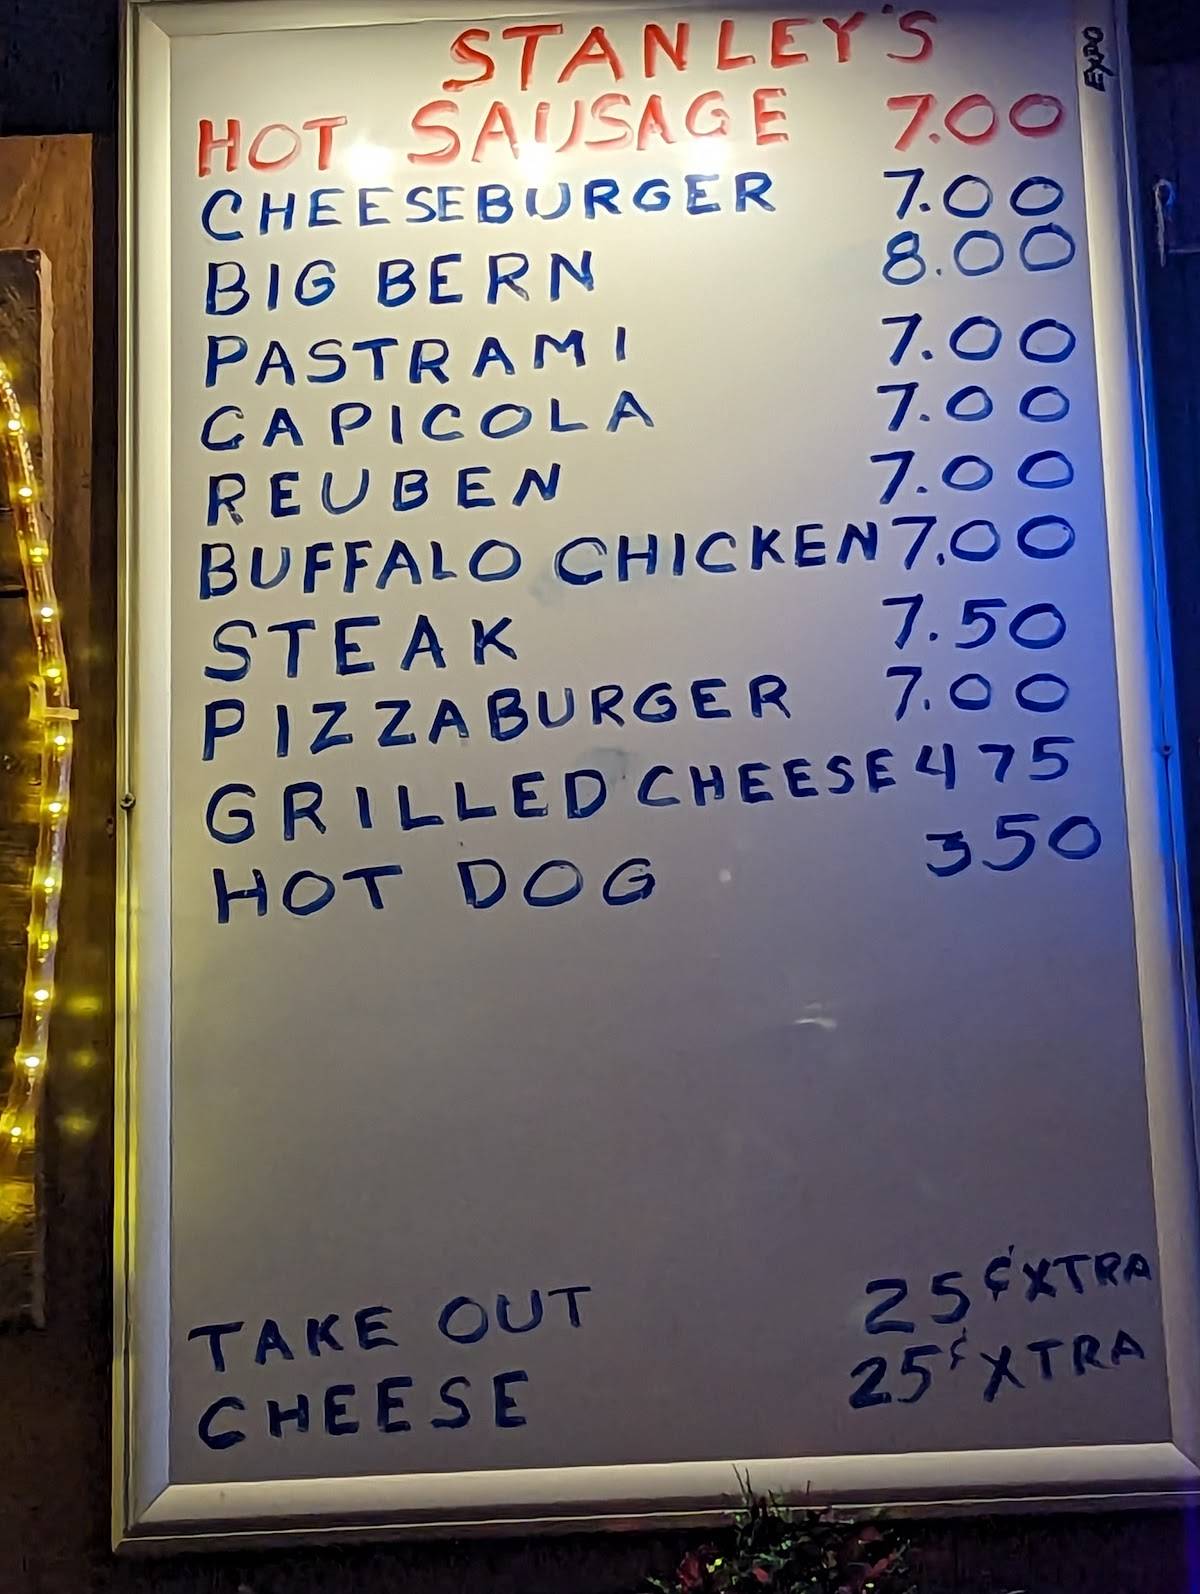 STANLEY'S
HOT SAUSAGE 7.00
CHEESEBURGER 7.00
BIG BERN 8.00
PASTRAMI 7.00
CAPICOLA 7.00
REUBEN 7.00
BUFFALO CHICKEN 7.00
STEAK 7.50
PIZZABURGER 7.00
GRILLED CHEESE 475
HOT DOG 350
TAKE OUT 25¢ XTRA
CHEESE 25¢ XTRA
EXPO